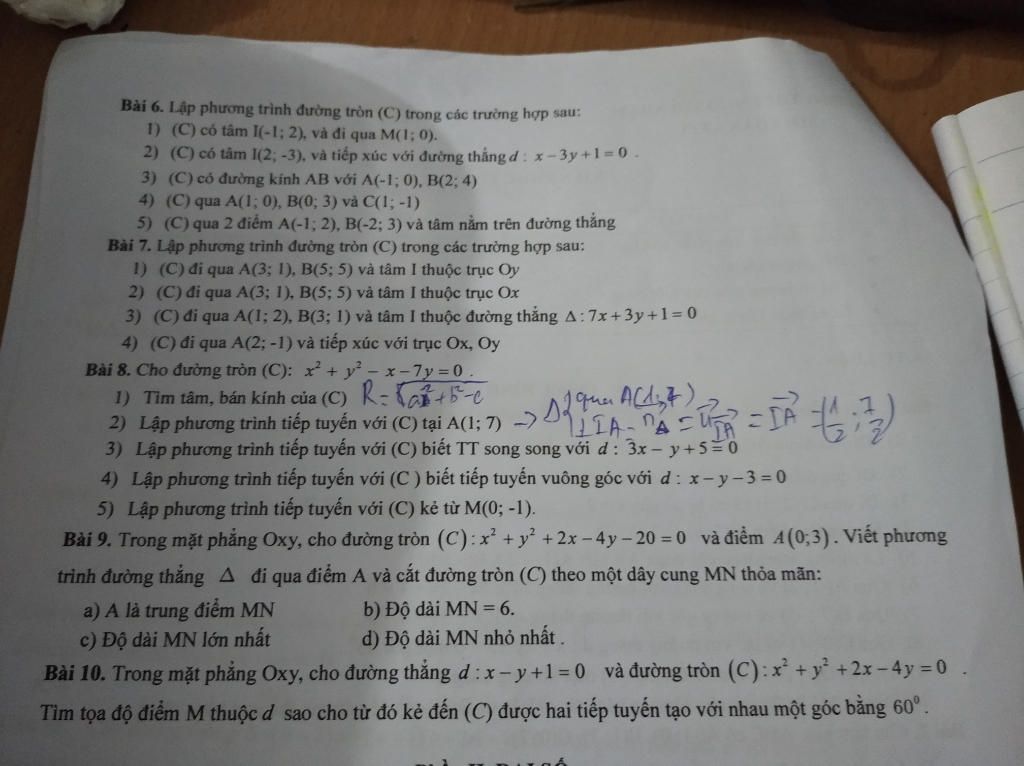 Bài 6. Lập phương trình đường tròn (C) trong các trường hợp sau:
1) (C) có tâm I(-1; 2), và đi qua M(1; 0).
2) (C) có tâm I(2; -3), và tiếp xúc với đường thẳng d : x − 3y + 1 = 0 .
3) (C) có đường kính AB với A(-1; 0), B(2; 4)
4) (C) qua A(1; 0), B(0; 3) và C(1; -1)
5) (C) qua 2 điểm A(-1; 2), B(-2; 3) và tâm nằm trên đường thẳng
Bài 7. Lập phương trình đường tròn (C) trong các trường hợp sau:
1) (C) đi qua A(3; 1), B(5; 5) và tâm I thuộc trục Oy
2) (C) đi qua A(3; 1), B(5; 5) và tâm I thuộc trục Ox
3) (C) đi qua A(1; 2), B(3; 1) và tâm I thuộc đường thẳng Δ : 7x + 3y + 1 = 0
4) (C) đi qua A(2; -1) và tiếp xúc với trục Ox, Oy
Bài 8. Cho đường tròn (C): x² + y² − x − 7y = 0 .
1) Tìm tâm, bán kính của (C) R = √a²+b²-c
2) Lập phương trình tiếp tuyến với (C) tại A(1; 7) → Δ { qua A(1, 7)
⊥ IA - n⃗Δ = u⃗IA = I⃗A = (1/2 ; 7/2)
3) Lập phương trình tiếp tuyến với (C) biết TT song song với d : 3x − y + 5 = 0
4) Lập phương trình tiếp tuyến với (C ) biết tiếp tuyến vuông góc với d : x − y − 3 = 0
5) Lập phương trình tiếp tuyến với (C) kẻ từ M(0; -1).
Bài 9. Trong mặt phẳng Oxy, cho đường tròn (C) : x² + y² + 2x − 4y − 20 = 0 và điểm A(0;3) . Viết phương
trình đường thẳng Δ đi qua điểm A và cắt đường tròn (C) theo một dây cung MN thỏa mãn:
a) A là trung điểm MN b) Độ dài MN = 6.
c) Độ dài MN lớn nhất d) Độ dài MN nhỏ nhất .
Bài 10. Trong mặt phẳng Oxy, cho đường thẳng d : x − y + 1 = 0 và đường tròn (C) : x² + y² + 2x − 4y = 0 .
Tìm tọa độ điểm M thuộc d sao cho từ đó kẻ đến (C) được hai tiếp tuyến tạo với nhau một góc bằng 60⁰ .